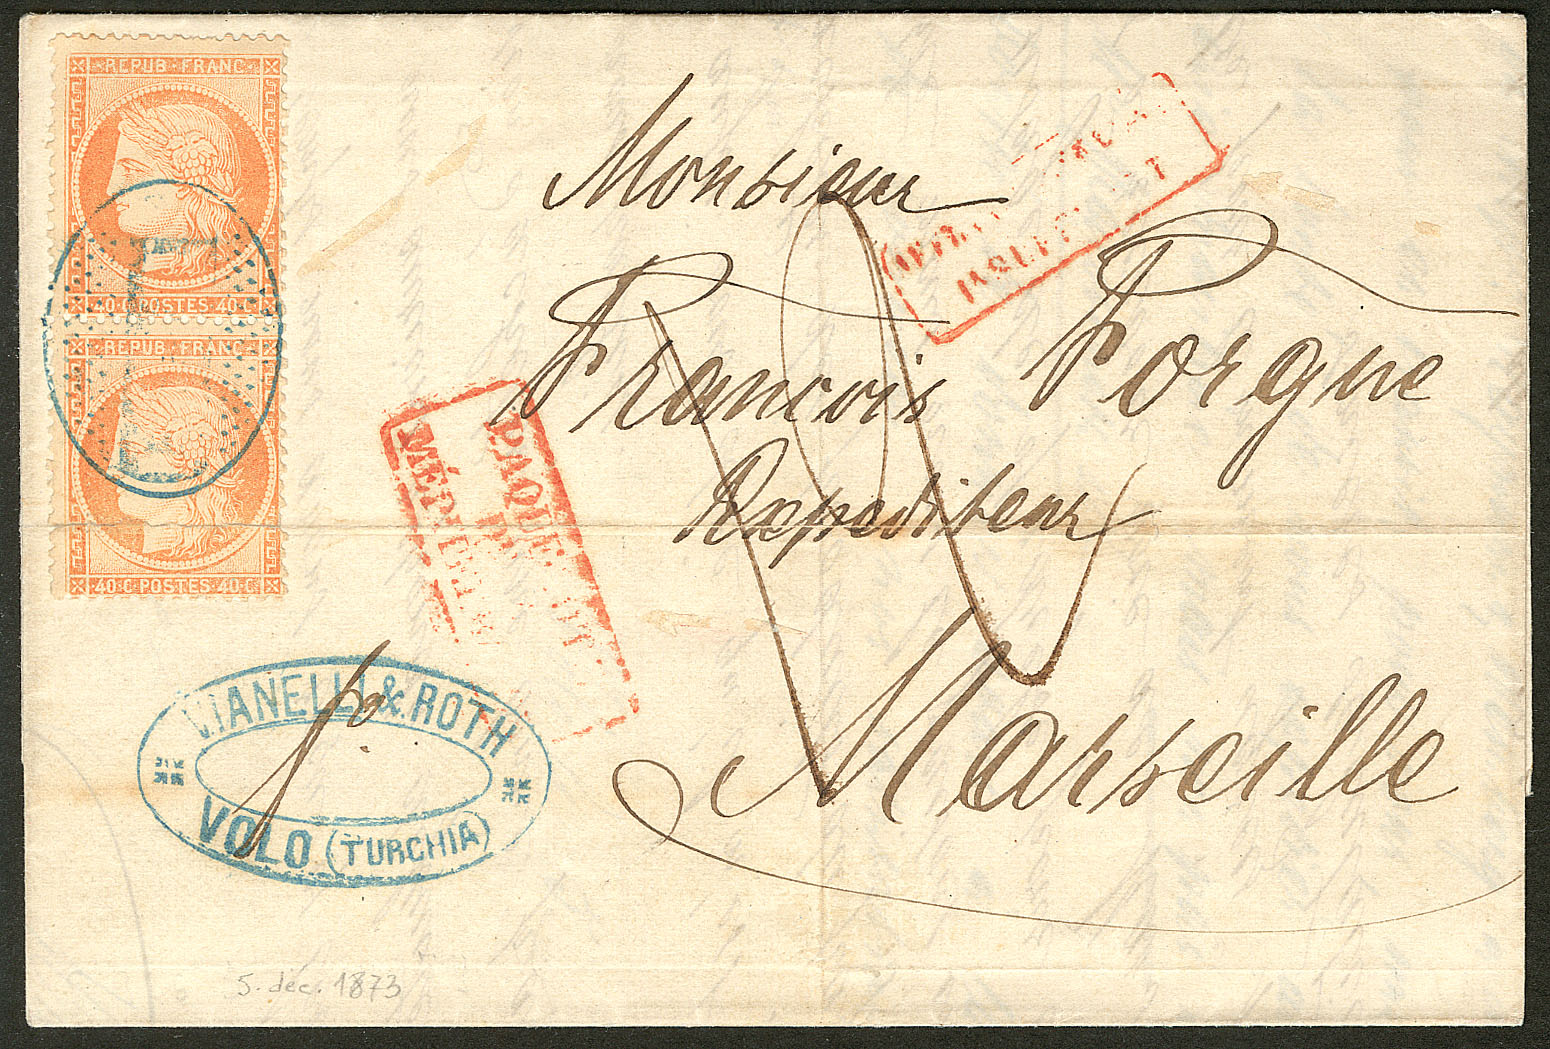 REPUB·FRANC
40·C·POSTES·40·C
REPUB·FRANC
40·C·POSTES·40·C
Monsieur
Francois Forgue
Expediteur
Marseille
PAQUEBOT
po
VIANELLI & ROTH
VOLO (TURCHIA)
5. déc. 1873